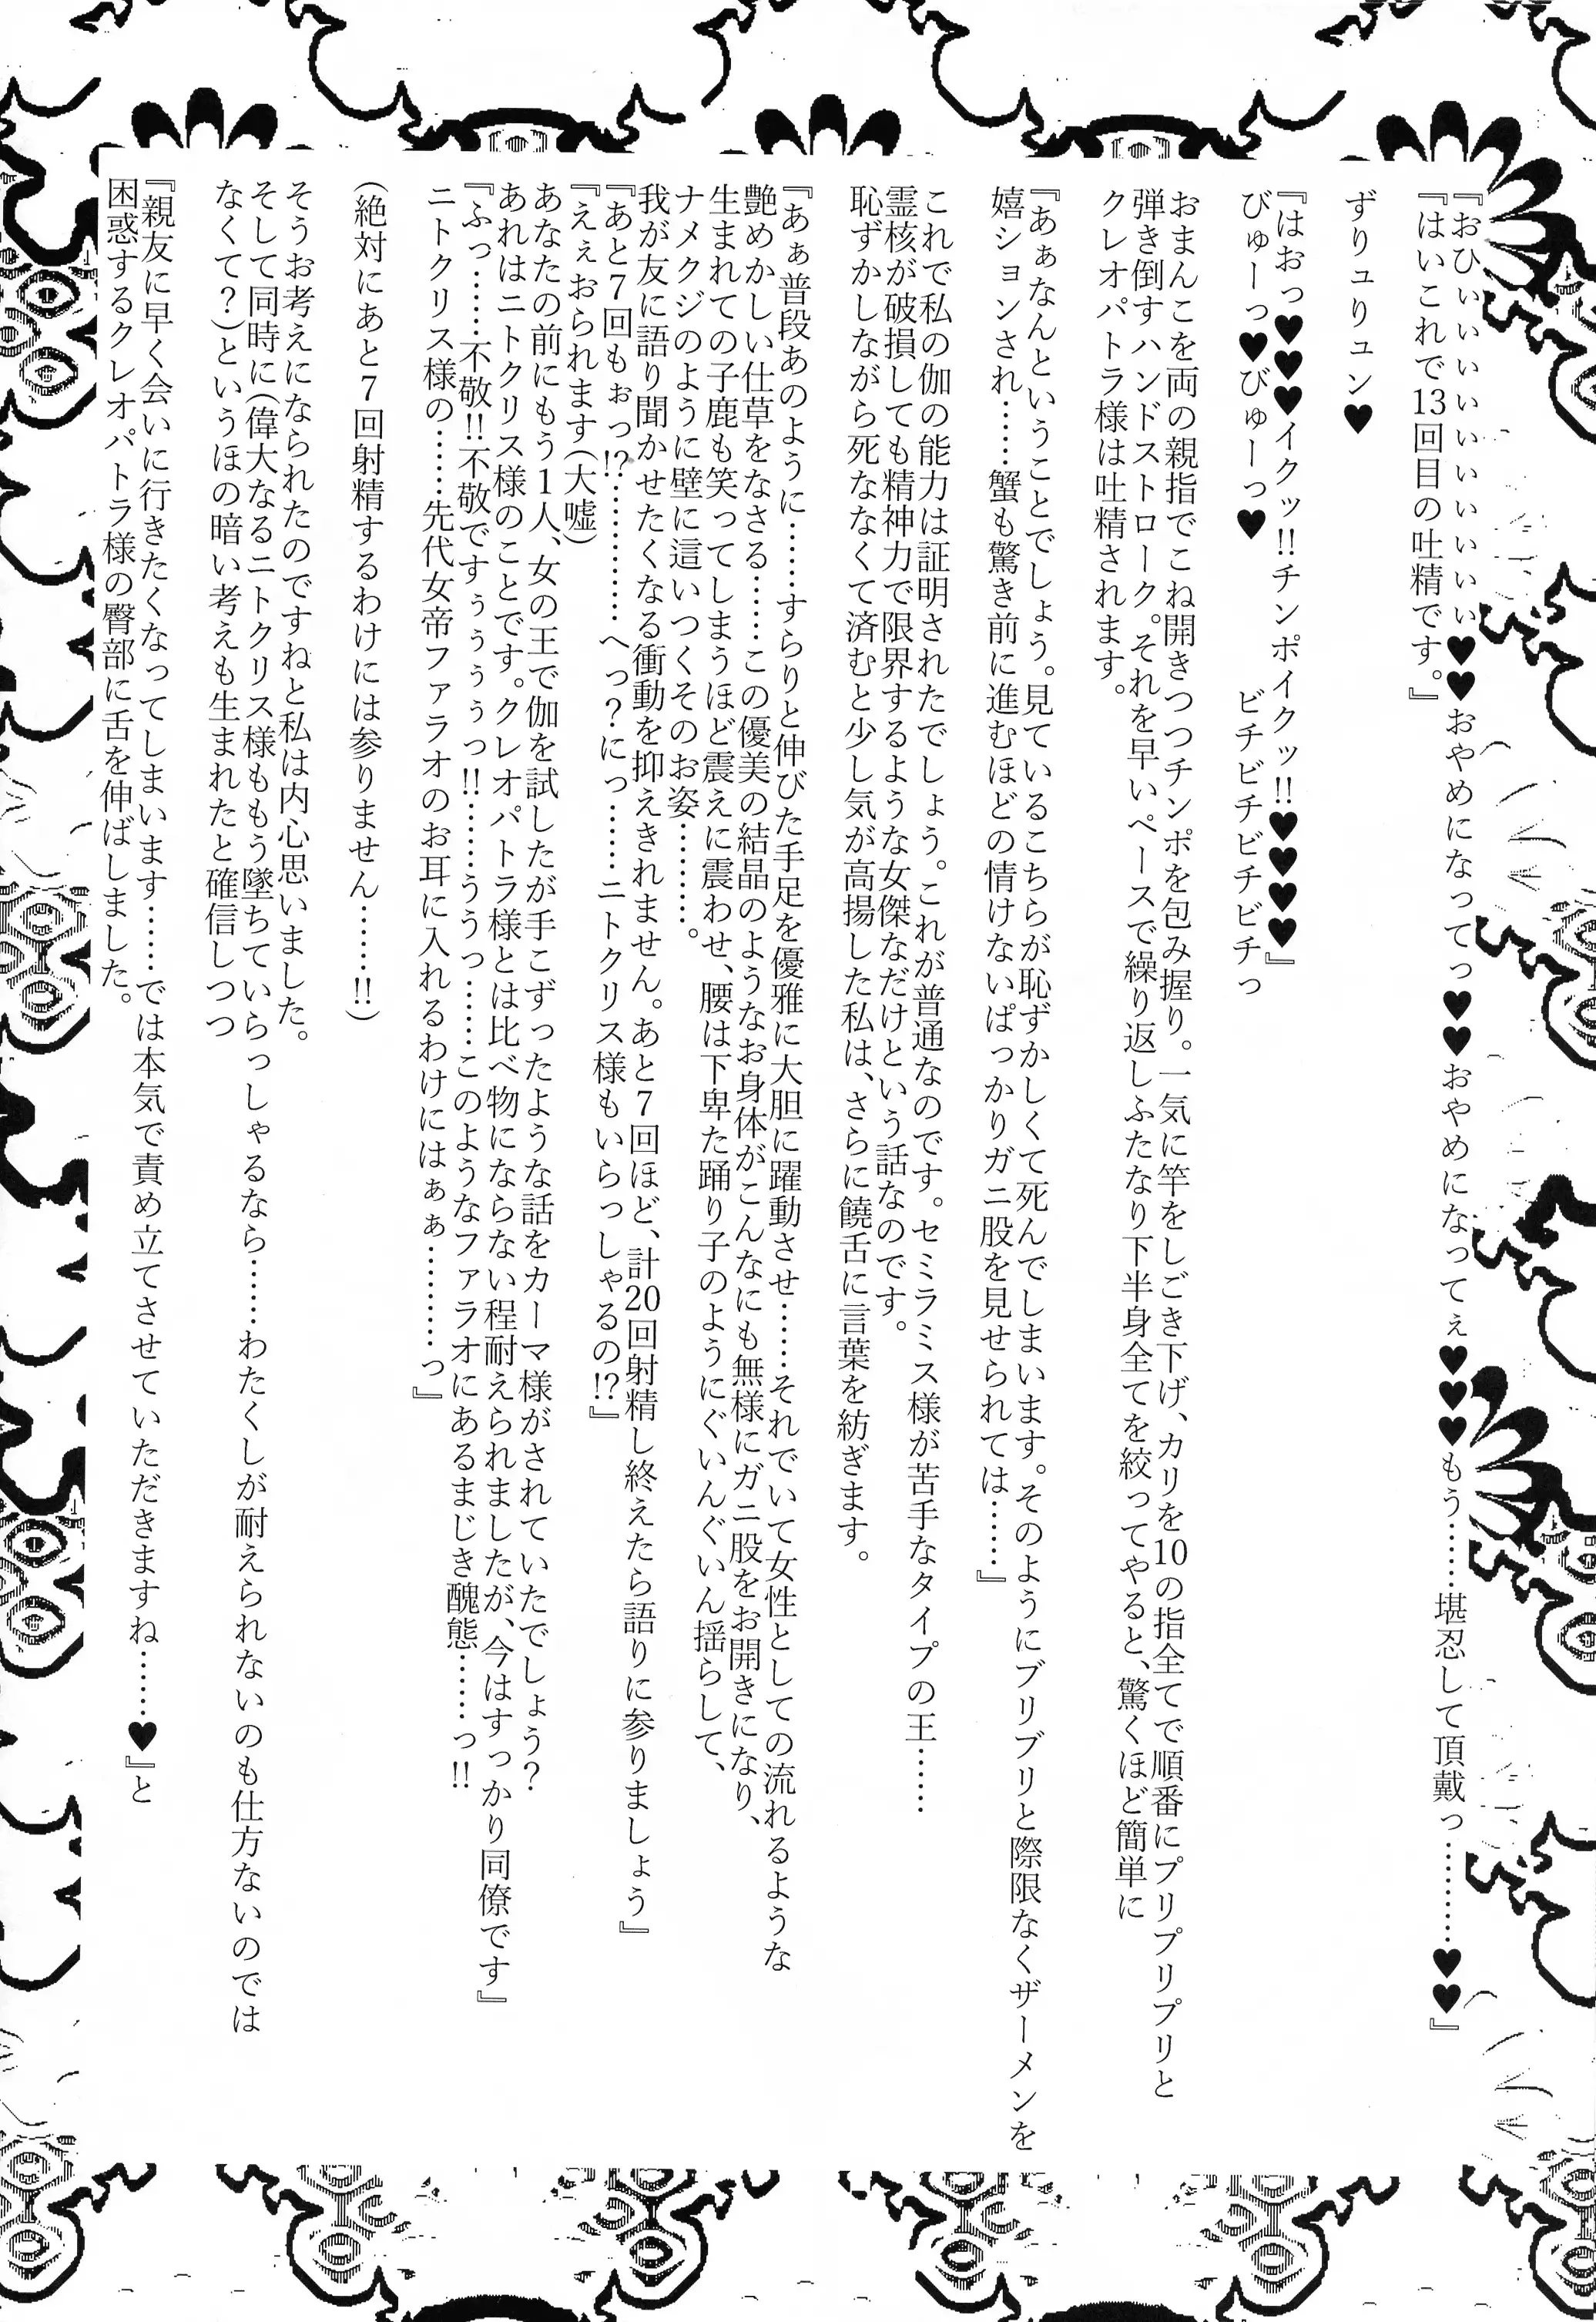 『おひぃいいいいいいいいぃ♥♥おやめになってっ♥♥おやめになってぇ♥♥♥もう……堪忍して頂戴っ………♥♥』
『はいこれで13回目の吐精です。』
ずりュりュン♥
『はおっ♥♥♥イクッ!!チンポイクッ!!♥♥♥♥』
びゅーっ♥びゅーっ♥　ビチビチビチビチっ
おまんこを両の親指でこね開きつつチンポを包み握り。一気に竿をしごき下げ、カリを10の指全てで順番にプリプリプリと
弾き倒すハンドストローク。それを早いペースで繰り返しふたなり下半身全てを絞ってやると、驚くほど簡単に
クレオパトラ様は吐精されます。
『あぁなんということでしょう。見ているこちらが恥ずかしくて死んでしまいます。そのようにブリブリと際限なくザーメンを
嬉ションされ……蟹も驚き前に進むほどの情けないぱっかりガニ股を見せられては……』
これで私の伽の能力は証明されたでしょう。これが普通なのです。セミラミス様が苦手なタイプの王……
霊核が破損しても精神力で限界するような女傑なだけという話なのです。
恥ずかしながら死ななくて済むと少し気が高揚した私は、さらに饒舌に言葉を紡ぎます。
『あぁ普段あのように……すらりと伸びた手足を優雅に大胆に躍動させ……それでいて女性としての流れるような
艶めかしい仕草をなさる……この優美の結晶のようなお身体がこんなにも無様にガニ股をお開きになり、
生まれての子鹿も笑ってしまうほど震えに震わせ、腰は下卑た踊り子のようにぐいんぐいん揺らして、
ナメクジのように壁に這いつくそのお姿………。
我が友に語り聞かせたくなる衝動を抑えきれません。あと7回ほど、計20回射精し終えたら語りに参りましょう』
『あと7回もぉっ!?…………へっ?にっ……ニトクリス様もいらっしゃるの!?』
『えぇおられます(大嘘)
あなたの前にもう1人、女の王で伽を試したが手こずったような話をカーマ様がされていたでしょう?
あれはニトクリス様のことです。クレオパトラ様とは比べ物にならない程耐えられましたが、今はすっかり同僚です』
『ふっ……不敬!!不敬ですぅぅぅぅっ!!……ううっ……このようなファラオにあるまじき醜態……っ!!
ニトクリス様の……先代女帝ファラオのお耳に入れるわけにはぁぁ………っ』
(絶対にあと7回射精するわけには参りません……!!)
そうお考えになられたのですねと私は内心思いました。
そして同時に(偉大なるニトクリス様ももう墜ちていらっしゃるなら……わたくしが耐えられないのも仕方ないのでは
なくて?)というほの暗い考えも生まれたと確信しつつ
『親友に早く会いに行きたくなってしまいます……では本気で責め立てさせていただきますね……♥』と
困惑するクレオパトラ様の臀部に舌を伸ばしました。